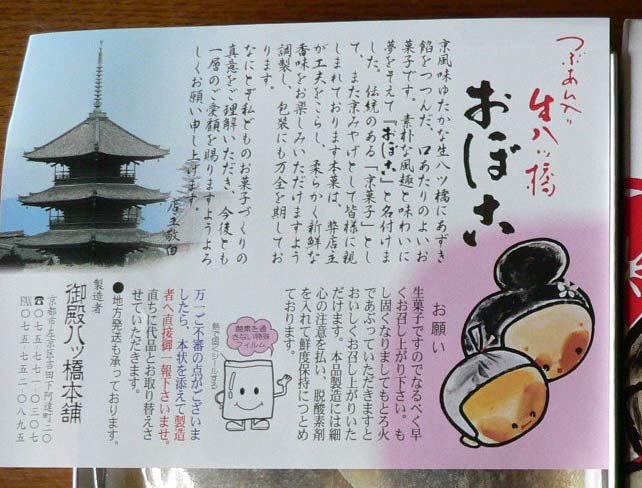 つぶあん入り
生八ッ橋
おぼこ
京風味ゆたかな生八ッ橋にあずき
餡をつつんだ、口あたりのよいお
菓子です。素朴な風趣と味わいに
夢をそえて『おぼこ』と名付けま
した。伝統のある「京菓子」とし
て、また京みやげとして皆様に親
しまれております本菓は、弊店主
が工夫をこらし、柔らかく新鮮な
香味をお楽しみいただけますよう
調製し、包装にも万全を期してお
ります。
なにとぞ私どものお菓子づくりの
真意をご理解いただき、今後とも
一層のご愛顧を賜りますようよろ
しくお願い申し上げます。
店主敬白
お願い
生菓子ですのでなるべく早
くお召し上がり下さい。も
し固くなりましてもとろ火
であぶっていただきますと
おいしくお召し上がりいた
だけます。本品製造には細
心の注意を払い、脱酸素剤
を入れて鮮度保持につとめ
ております。
酸素を通
さない特殊
フィルム
熱で固くシールする
万一ご不審の点がございま
したら、本状を添えて製造
者へ直接御一報下さいませ。
直ちに代品とお取り替えさ
せていただきます。
●地方発送も承っております。
製造者
御殿八ッ橋本舗
京都市左京区吉田下阿達町二〇
☎〇七五・七七一・〇三〇七
FAX〇七五・七五二・〇八九五